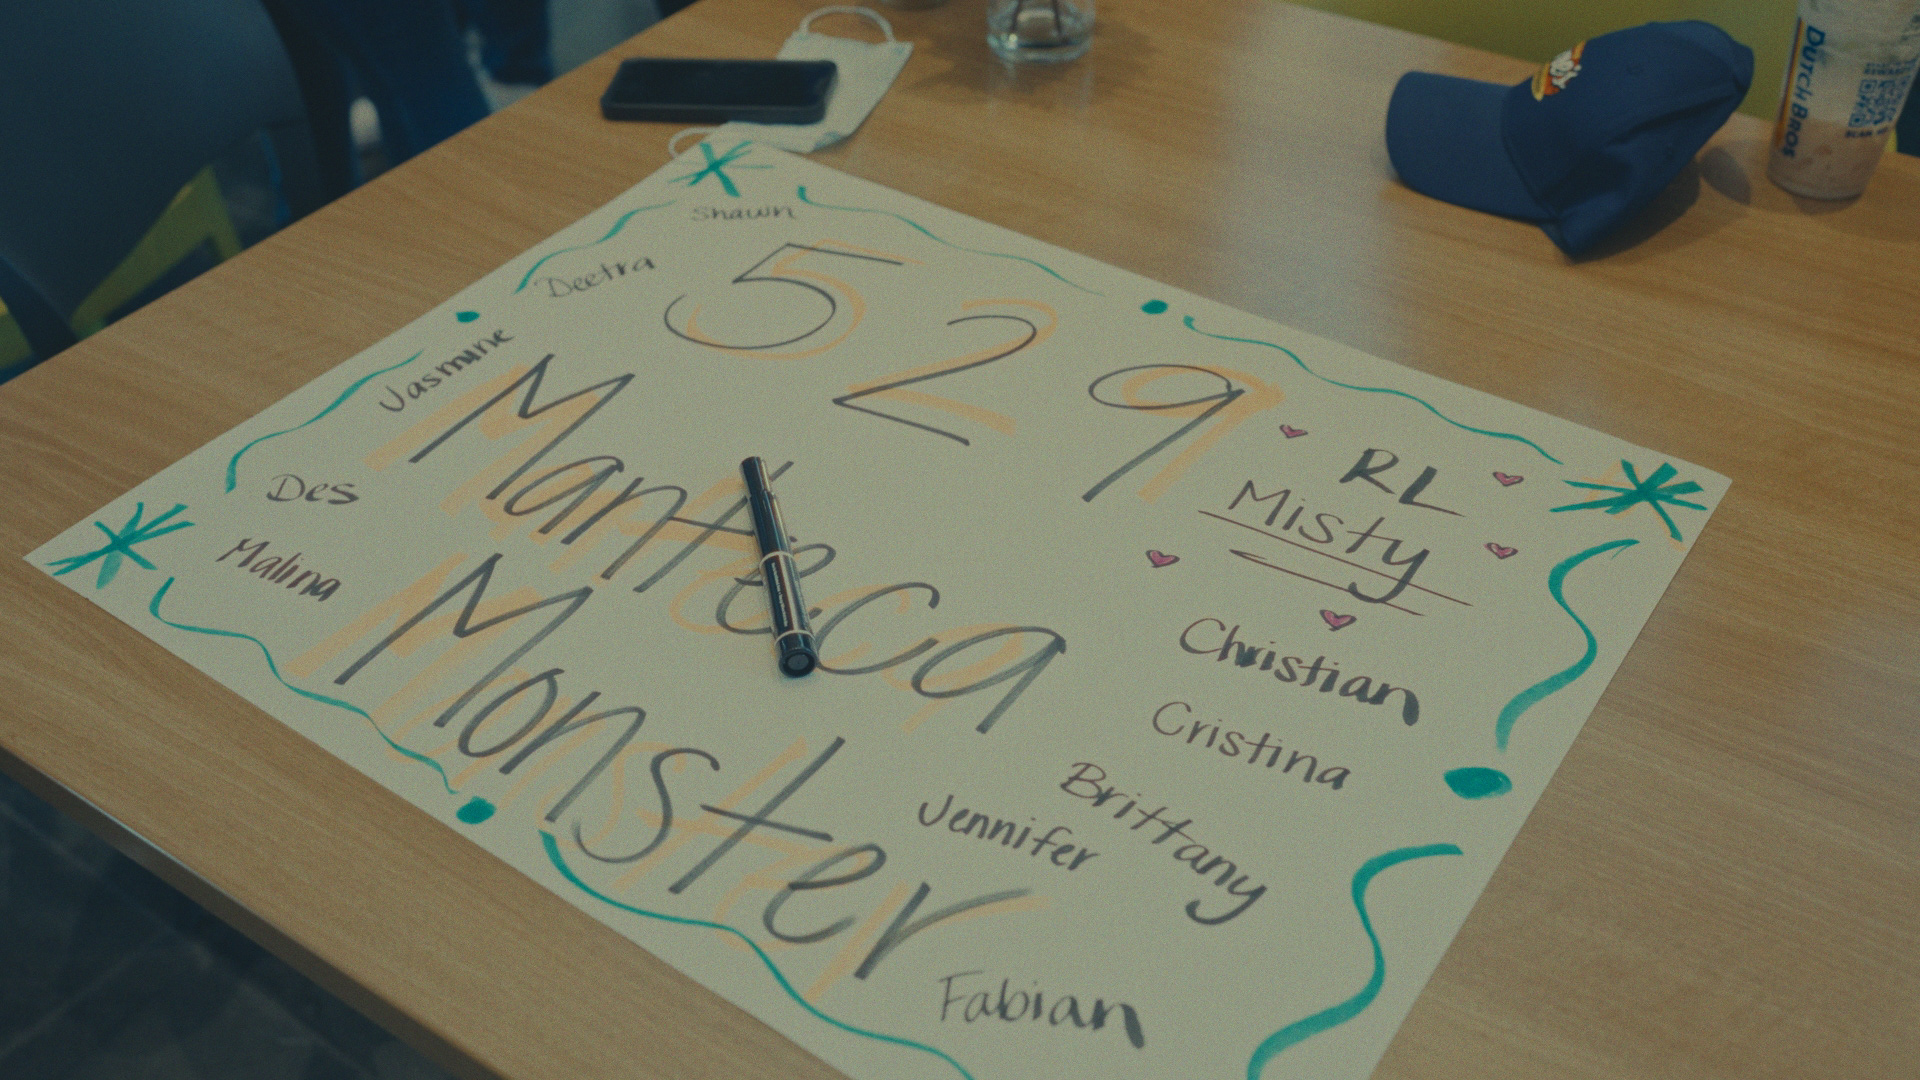 Shawn
Deetra
Jasmine
Des
Malina
529
Manteca
Monster
RL
Misty
Christian
Cristina
Brittany
Jennifer
Fabian
Dutch Bros
SCAN